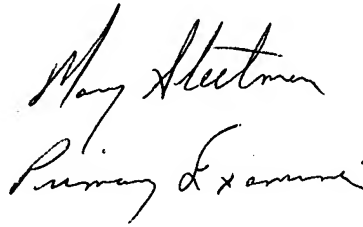 Mary Steelman
Primary Examiner